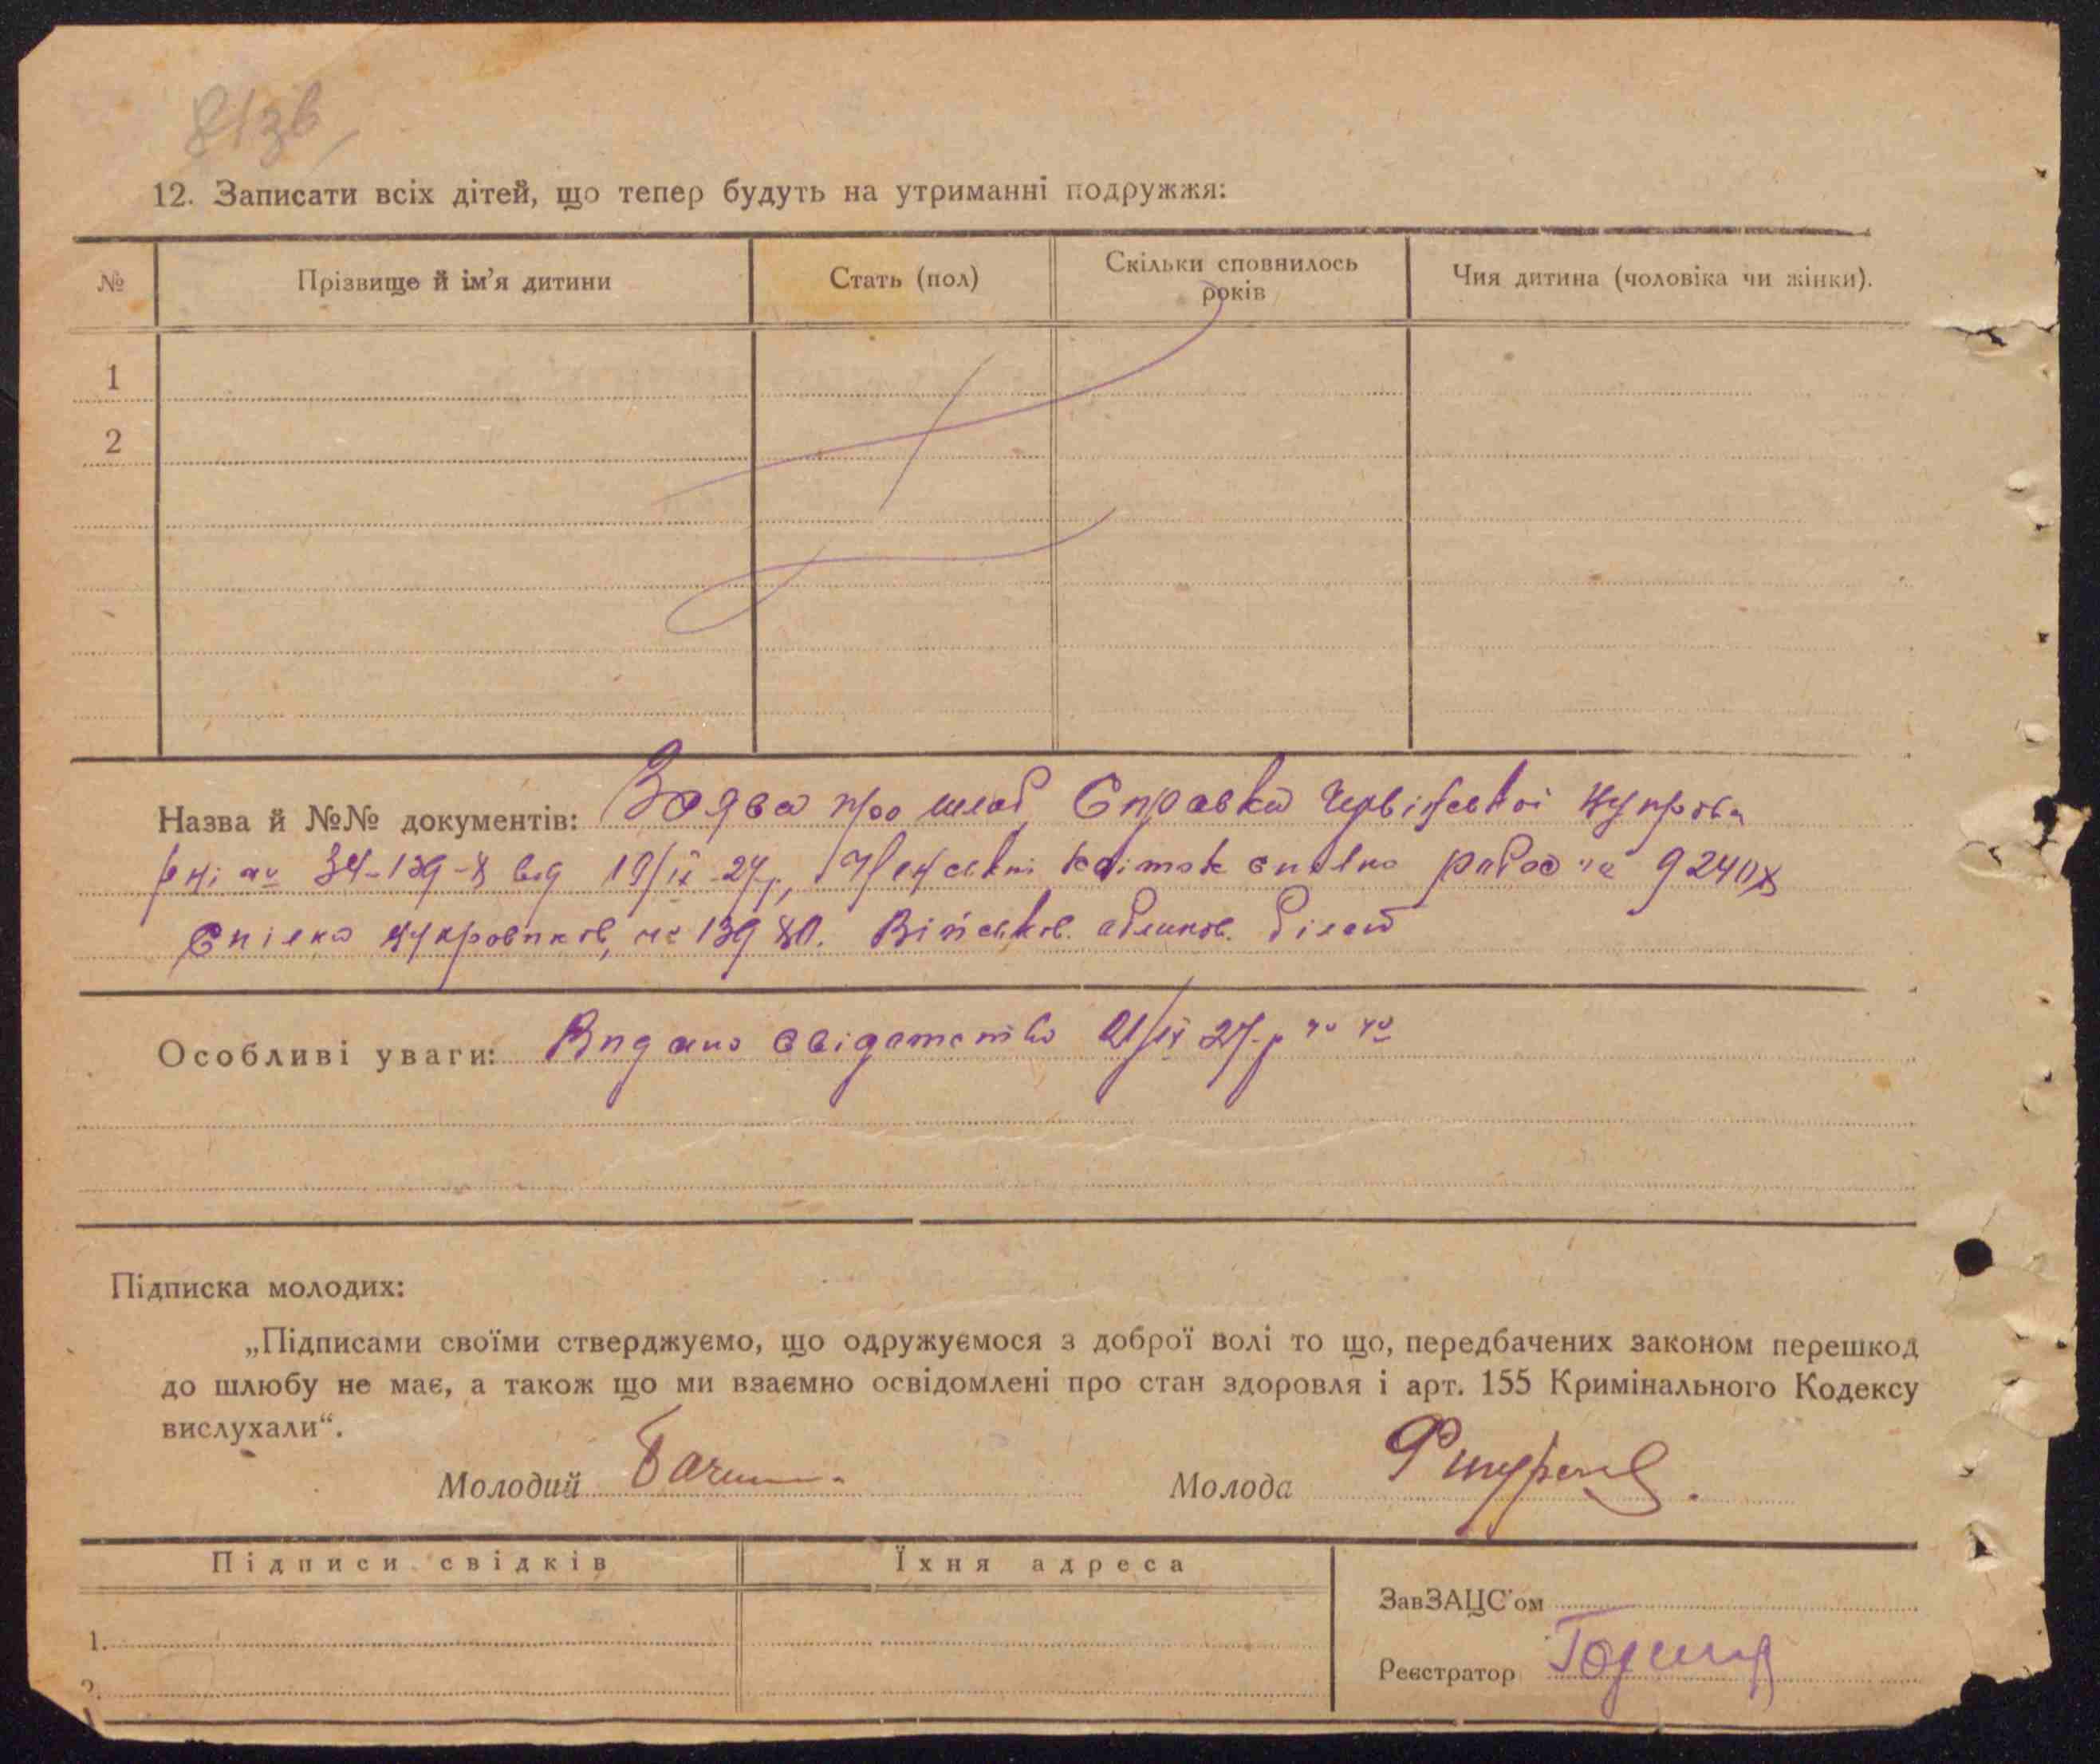 81зв
12. Записати всіх дітей, що тепер будуть на утриманні подружжя:
№ Прізвище й ім'я дитини Стать (пол) Скільки сповнилось років Чия дитина (чоловіка чи жінки).
1
2
Назва й №№ документів: Заява про шлюб, Справка цукрова
рні 34-139-8 від 19/ІХ 27 р, Членські 9240
Спілка цукровиків, № 13980. Військов. обліков. білет
Особливі уваги: Видано свідотство 21/ІХ 27 р
Підписка молодих:
„Підписами своїми стверджуємо, що одружуємося з доброї волі то що, передбачених законом перешкод
до шлюбу не має, а також що ми взаємно освідомлені про стан здоровля і арт. 155 Кримінального Кодексу
вислухали“.
Молодий Молода
Підписи свідків Їхня адреса
ЗавЗАЦС'ом
1.
Реєстратор
2.